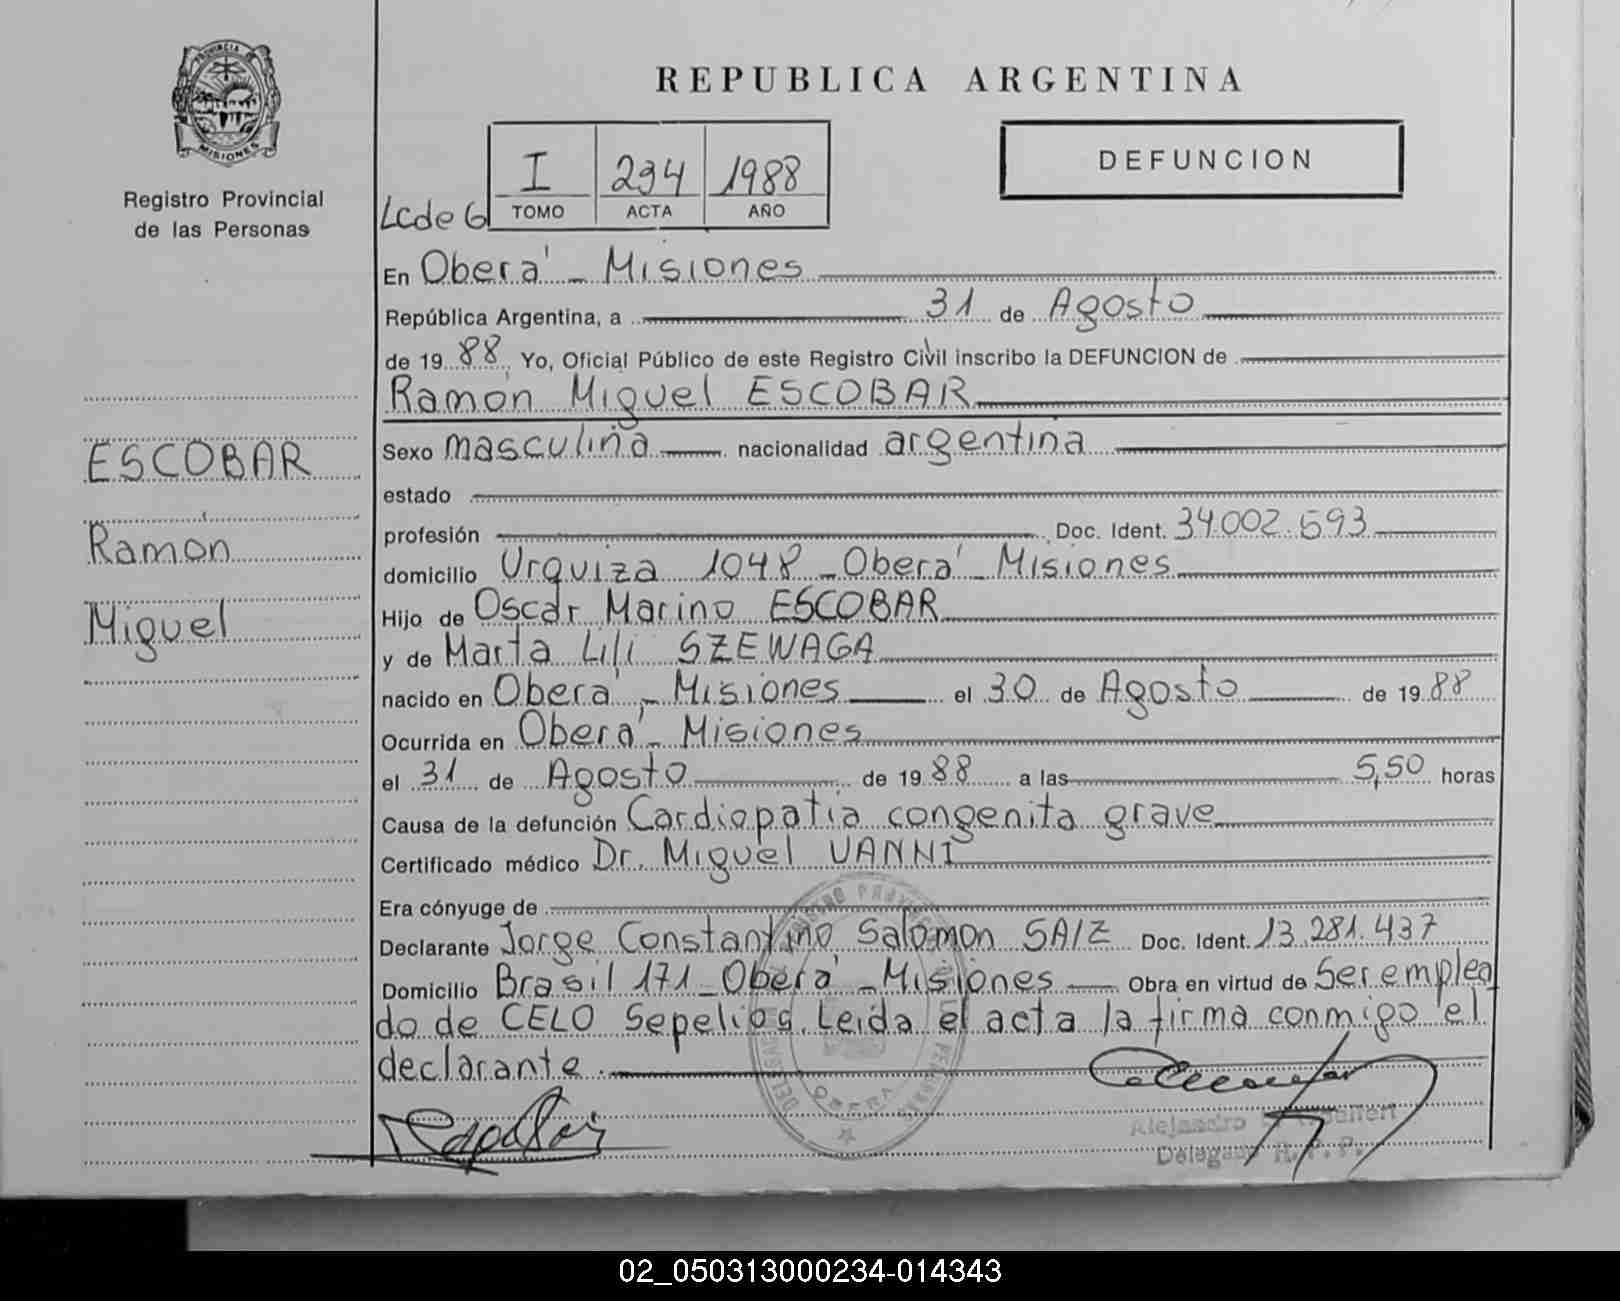 PROVINCIA DE
MISIONES
Registro Provincial
de las Personas
ESCOBAR
Ramón
Miguel
REPUBLICA ARGENTINA
DEFUNCION
I 234 1988
Lcde G TOMO ACTA AÑO
En Oberá - Misiones
República Argentina, a 31 de Agosto
de 19 88 Yo, Oficial Público de este Registro Civil inscribo la DEFUNCION de
Ramón Miguel ESCOBAR
Sexo masculino nacionalidad argentina
estado
profesión Doc. Ident. 34.002.593
domicilio Urquiza 1048 - Oberá - Misiones
Hijo de Oscar Marino ESCOBAR
y de Marta Lili SZEWAGA
nacido en Oberá - Misiones el 30 de Agosto de 19 88
Ocurrida en Oberá - Misiones
el 31 de Agosto de 19 88 a las 5,50 horas
Causa de la defunción Cardiopatia congenita grave
Certificado médico Dr. Miguel VANNI
Era cónyuge de
Declarante Jorge Constantino Salomon SAIZ Doc. Ident. 13.281.437
Domicilio Brasil 171 - Oberá - Misiones Obra en virtud de Ser emplea
do de CELO Sepelios. Leida el acta la firma conmigo el
declarante
OBERA
Alejandro
Delegado R. P. P.
02_050313000234-014343